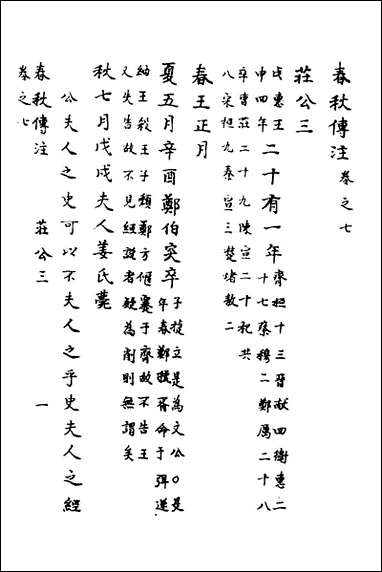 春秋傳注 卷之七
莊公三
戊惠王
申四年
二十有一年
齊桓十三晉獻四衛惠二
十七蔡穆二鄭厲二十八
卒曹莊二十九陳宣二十杞共
八宋桓九秦宣三楚堵敖二
春王正月
夏五月辛酉鄭伯突卒
子捷立是為文公○是
年春鄭虢胥命于弭遂
納王殺王子頹鄭方偃蹇于齊故不告王
又失告故不見經說者疑為削則無謂矣
秋七月戊戌夫人姜氏薨
公夫人之史可以不夫人之乎史夫人之經
春秋傳注 莊公三 一
卷之七